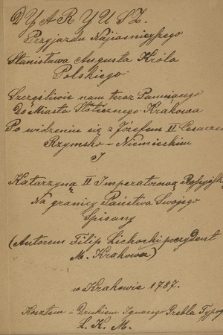 DYARYUSZ.
Przyjazdu Najjasnieyszego
Stanisława Augusta Króla
Polskiego
Szczęśliwie nam teraz Panującego
Do Miasta Stołecznego Krakowa
Po widzeniu się z Józefem II Cesarzem
Rzymsko-Niemieckim
I
Katarzyną II Imperatorową Rossyiską
Na granicy Państwa Swojego
Spisany
(Autorem Filip Lichocki prezydent
M. Krakowa)
w Krakowie 1787.
Drukiem Ignacego Grebla Typog
J. K. M.